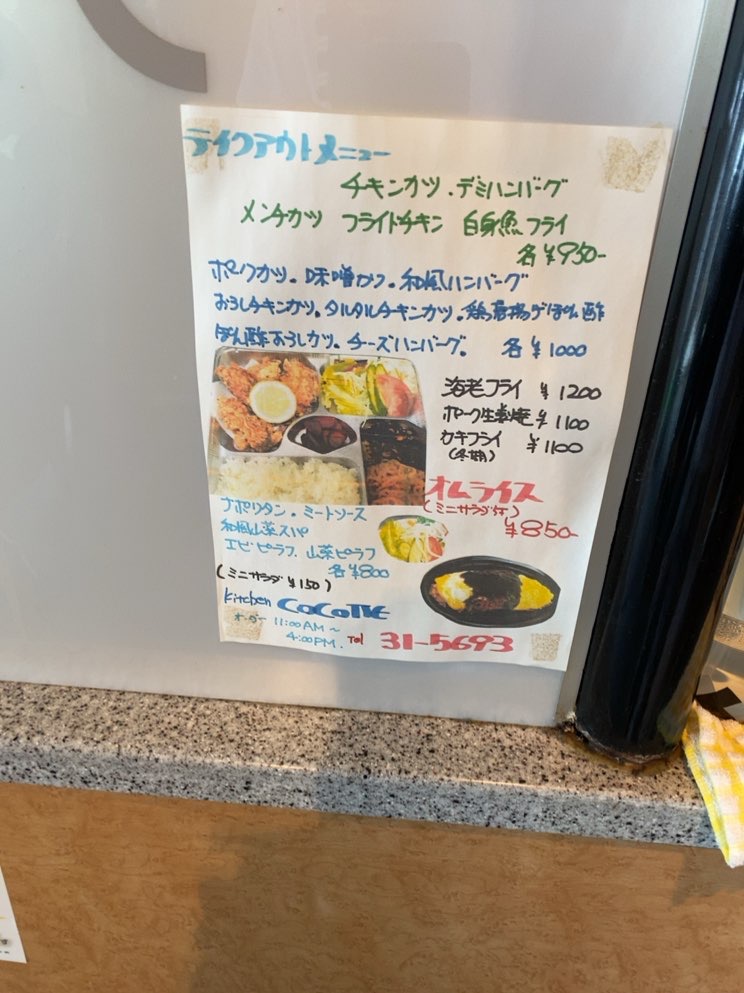 テイクアウトメニュー
チキンカツ．デミハンバーグ
メンチカツ フライドチキン 白身魚フライ
各¥950-
ポークカツ。味噌カツ。和風ハンバーグ
おろしチキンカツ。タルタルチキンカツ。鶏唐揚げぽん酢
ぽん酢おろしカツ。チーズハンバーグ。 各¥1000
海老フライ ¥1200
ポーク生姜焼 ¥1100
カキフライ ¥1100
(冬期)
オムライス
(ミニサラダ付)
¥850-
ナポリタン。ミートソース
和風山菜スパ
エビピラフ、山菜ピラフ
各¥800
(ミニサラダ ¥150)
kitchen COCOTTE
オーダー 11:00AM～
4:00PM. Tel 31-5693